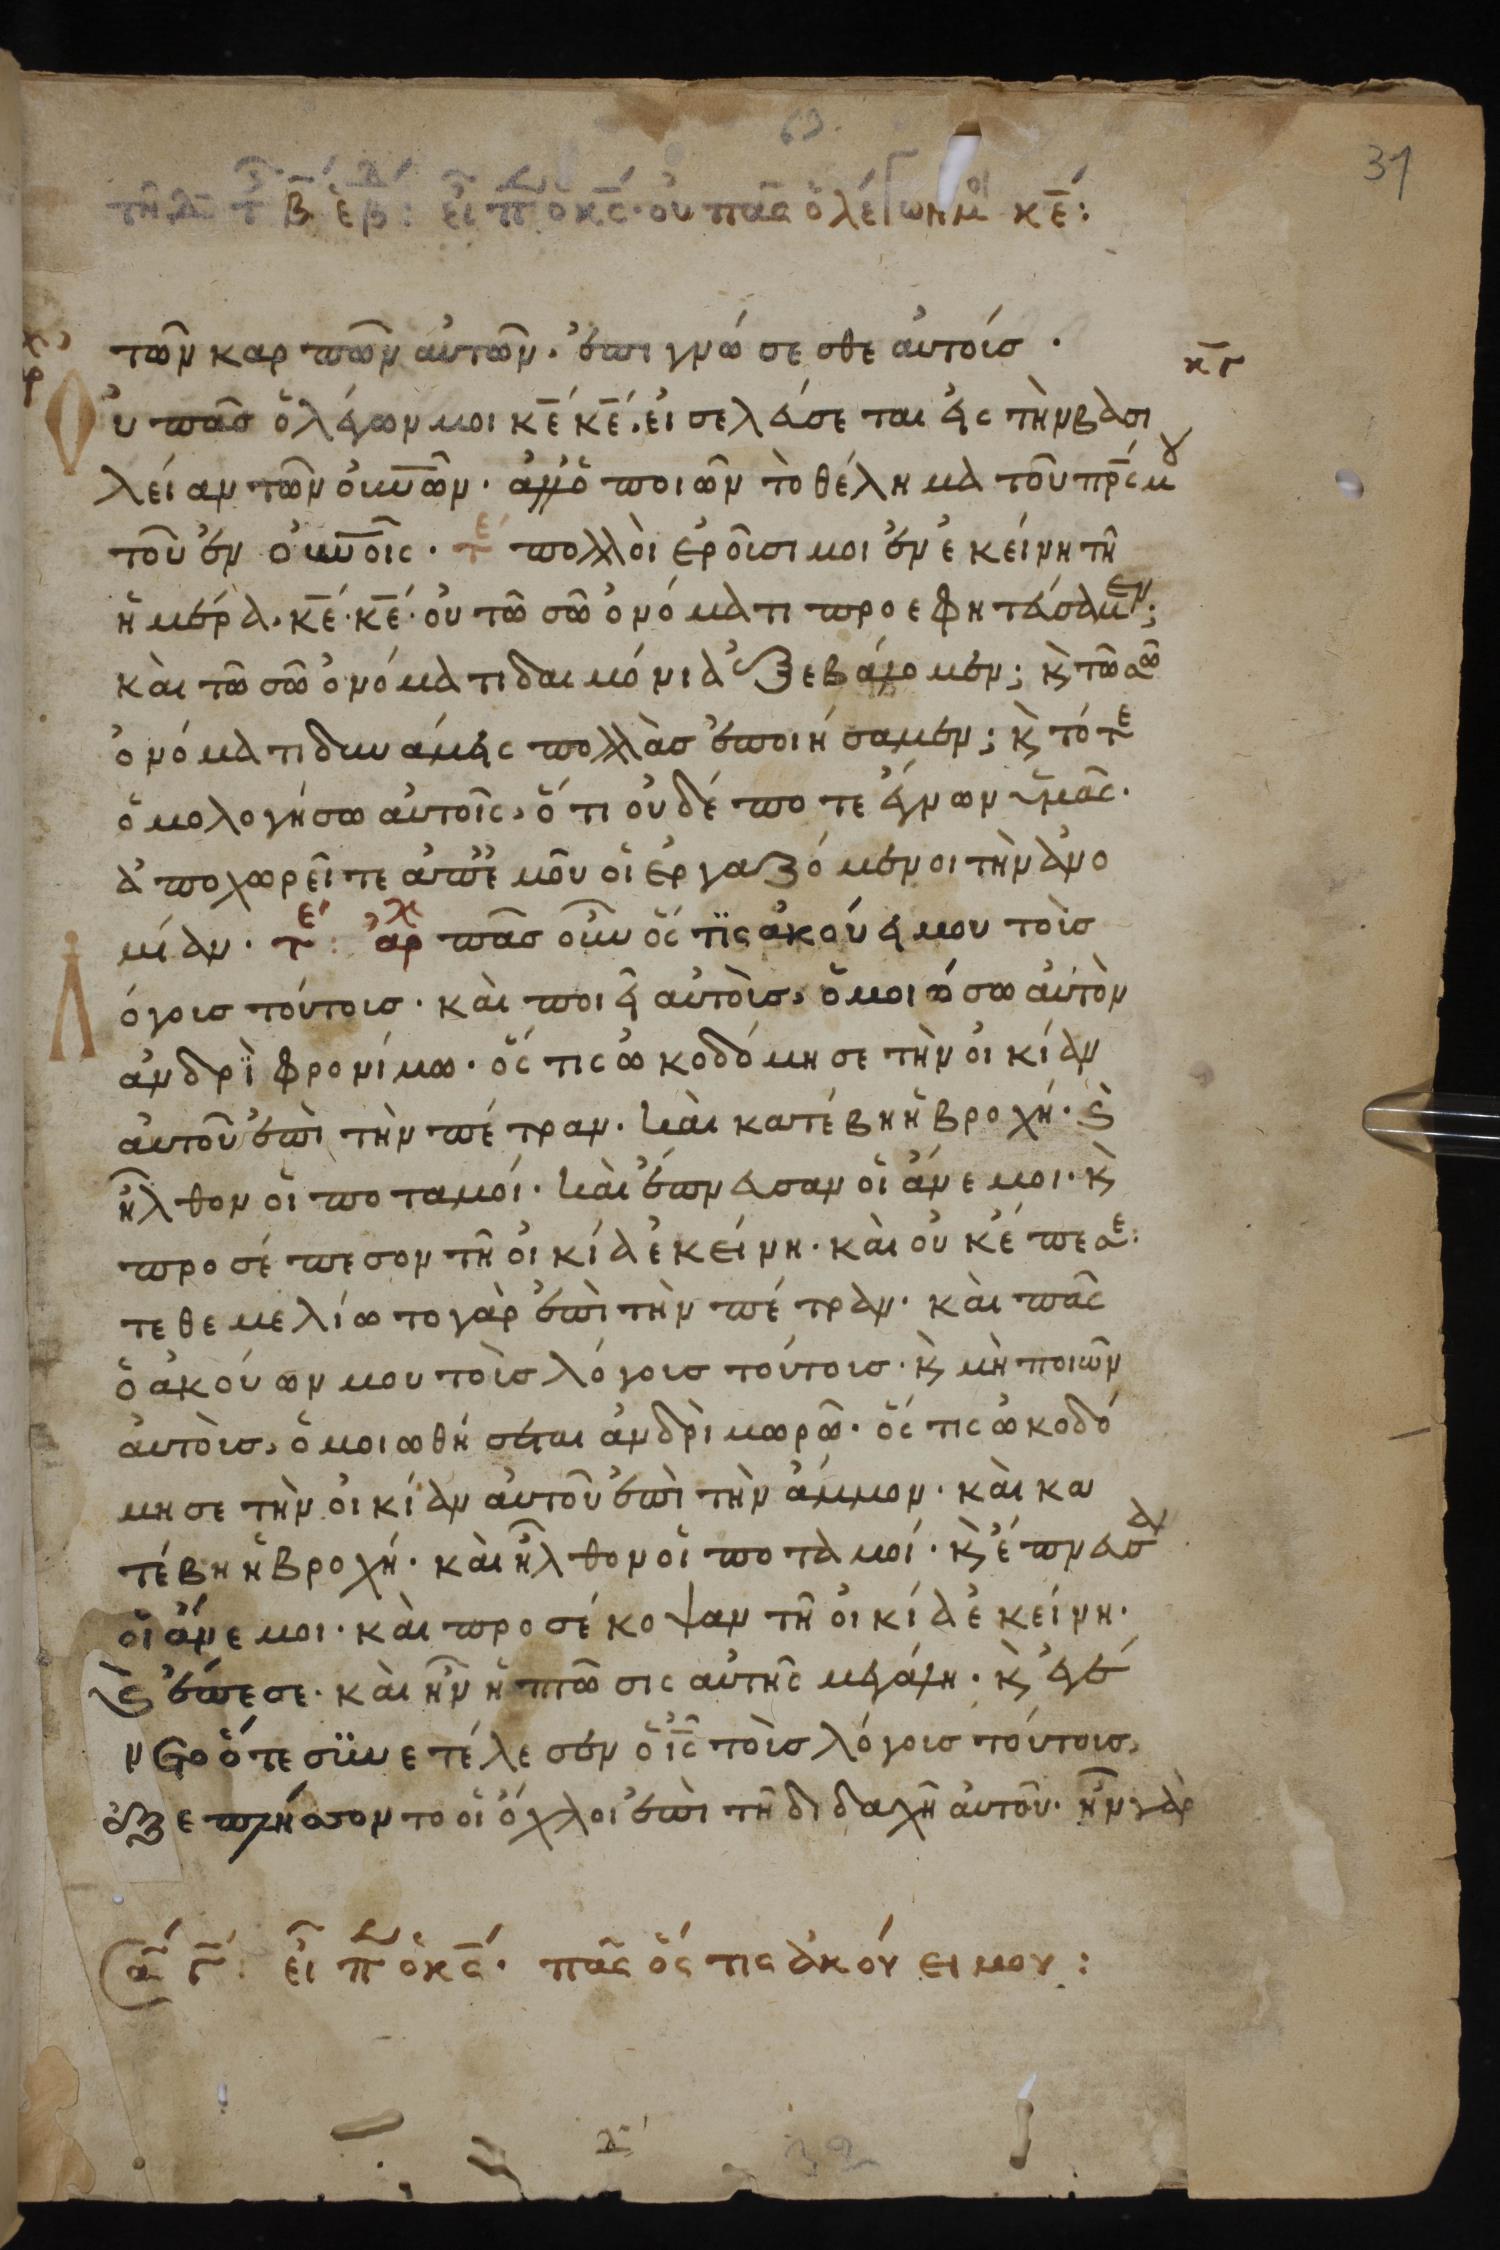 31
τῆ Δ τ β ἑβ: εἶπ ὁ κς· οὐ πᾶς ὁ λέγων μοι κε:
τῶν καρπῶν αὐτῶν· ἐπιγνώσεσθε αὐτοίσ·
κγ
Οὐ πᾶσ ὁ λέγων μοι κε κε, εἰσελεύσεται εἰς τὴν βασι
λείαν τῶν οὐνῶν· ἀλλ' ὁ ποιῶν τὸ θέλημα τοῦ πρς μου
τοῦ ἐν οὐνοῖς· τε πολλοὶ ἐροῦσι μοι ἐν ἐκείνη τῆ
ἡμέρα· κε· κε· οὐ τῶ σῶ ὀνόματι προεφητεύσαμεν;
καὶ τῶ σῶ ὀνόματι δαιμόνια ἐξεβάλομεν; κ τῶ σῶ
ὀνόματι δυνάμεις πολλὰσ ἐποιήσαμεν; κ τότε
ὁμολογήσω αὐτοῖς, ὅτι οὐδέποτε ἔγνων ὑμᾶς·
ἀποχωρεῖτε ἀπ' ἐμοῦ οἱ ἐργαζόμενοι τὴν ἀνο
μίαν· τε: ἀρχ πᾶσ οὖν ὅς τις ἀκούει μου τοὺσ
Λόγουσ τούτουσ· καὶ ποιεῖ αὐτοὺσ, ὁμοιώσω αὐτὸν
ἀνδρὶ φρονίμω· ὅς τις ὠκοδόμησε τὴν οἰκίαν
αὐτοῦ ἐπὶ τὴν πέτραν· καὶ κατέβη ἡ βροχή· κ
ἦλθον οἱ ποταμοί· καὶ ἔπνευσαν οἱ ἄνεμοι· κ
προσέπεσον τῆ οἰκία ἐκείνη· καὶ οὐκ ἔπεσε:
τεθεμελίωτο γὰρ ἐπὶ τὴν πέτραν· καὶ πᾶς
ὁ ἀκούων μου τοὺσ λόγουσ τούτουσ· κ μὴ ποιῶν
αὐτοὺσ, ὁμοιωθήσεται ἀνδρὶ μωρῶ· ὅς τις ὠκοδό
μησε τὴν οἰκίαν αὐτοῦ ἐπὶ τὴν ἄμμον· καὶ κα
τέβη ἡ βροχή· καὶ ἦλθον οἱ ποταμοί· κ ἔπνευσαν
οἱ ἄνεμοι· καὶ προσέκοψαν τῆ οἰκία ἐκείνη·
κ ἔπεσε· καὶ ἦν ἡ πτῶσις αὐτῆς μεγάλη· κ ἐγέ
νετο ὅτε συνετέλεσεν ὁ ἰς τοὺσ λόγουσ τούτουσ,
ἐξεπλήσσοντο οἱ ὄχλοι ἐπὶ τῆ διδαχῆ αὐτοῦ· ἦν γὰρ
σα γ: εἶπ ὁ κς· πᾶς ὅς τις ἀκούει μου: